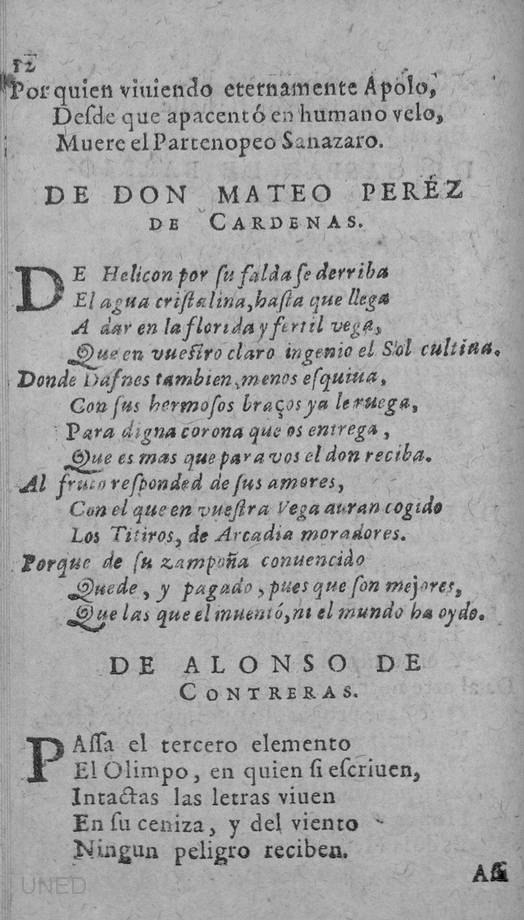 12
Por quien viuiendo eternamente Apolo,
Desde que apacentó en humano velo,
Muere el Partenopeo Sanazaro.
DE DON MATEO PERÉZ
DE CARDENAS.
DE Helicon por ſu falda ſe derriba
El agua criſtalina, haſta que llega
A dar en la florida y fertil vega,
Que en vueſtro claro ingenio el Sol cultiua.
Donde Dafnes tambien, menos eſquiua,
Con ſus hermoſos braços ya le ruega,
Para digna corona que os entrega,
Que es mas que para vos el don reciba.
Al fruto reſponded de ſus amores,
Con el que en vueſtra Vega auran cogido
Los Titiros, de Arcadia moradores.
Porque de ſu zampoña conuencido
Quede, y pagado, pues que ſon mejores,
Que las que el inuentó, ni el mundo ha oydo.
DE ALONSO DE
CONTRERAS.
PAſſa el tercero elemento
El Olimpo, en quien ſi eſcriuen,
Intactas las letras viuen
En ſu ceniza, y del viento
Ningun peligro reciben.
Aſſi
UNED